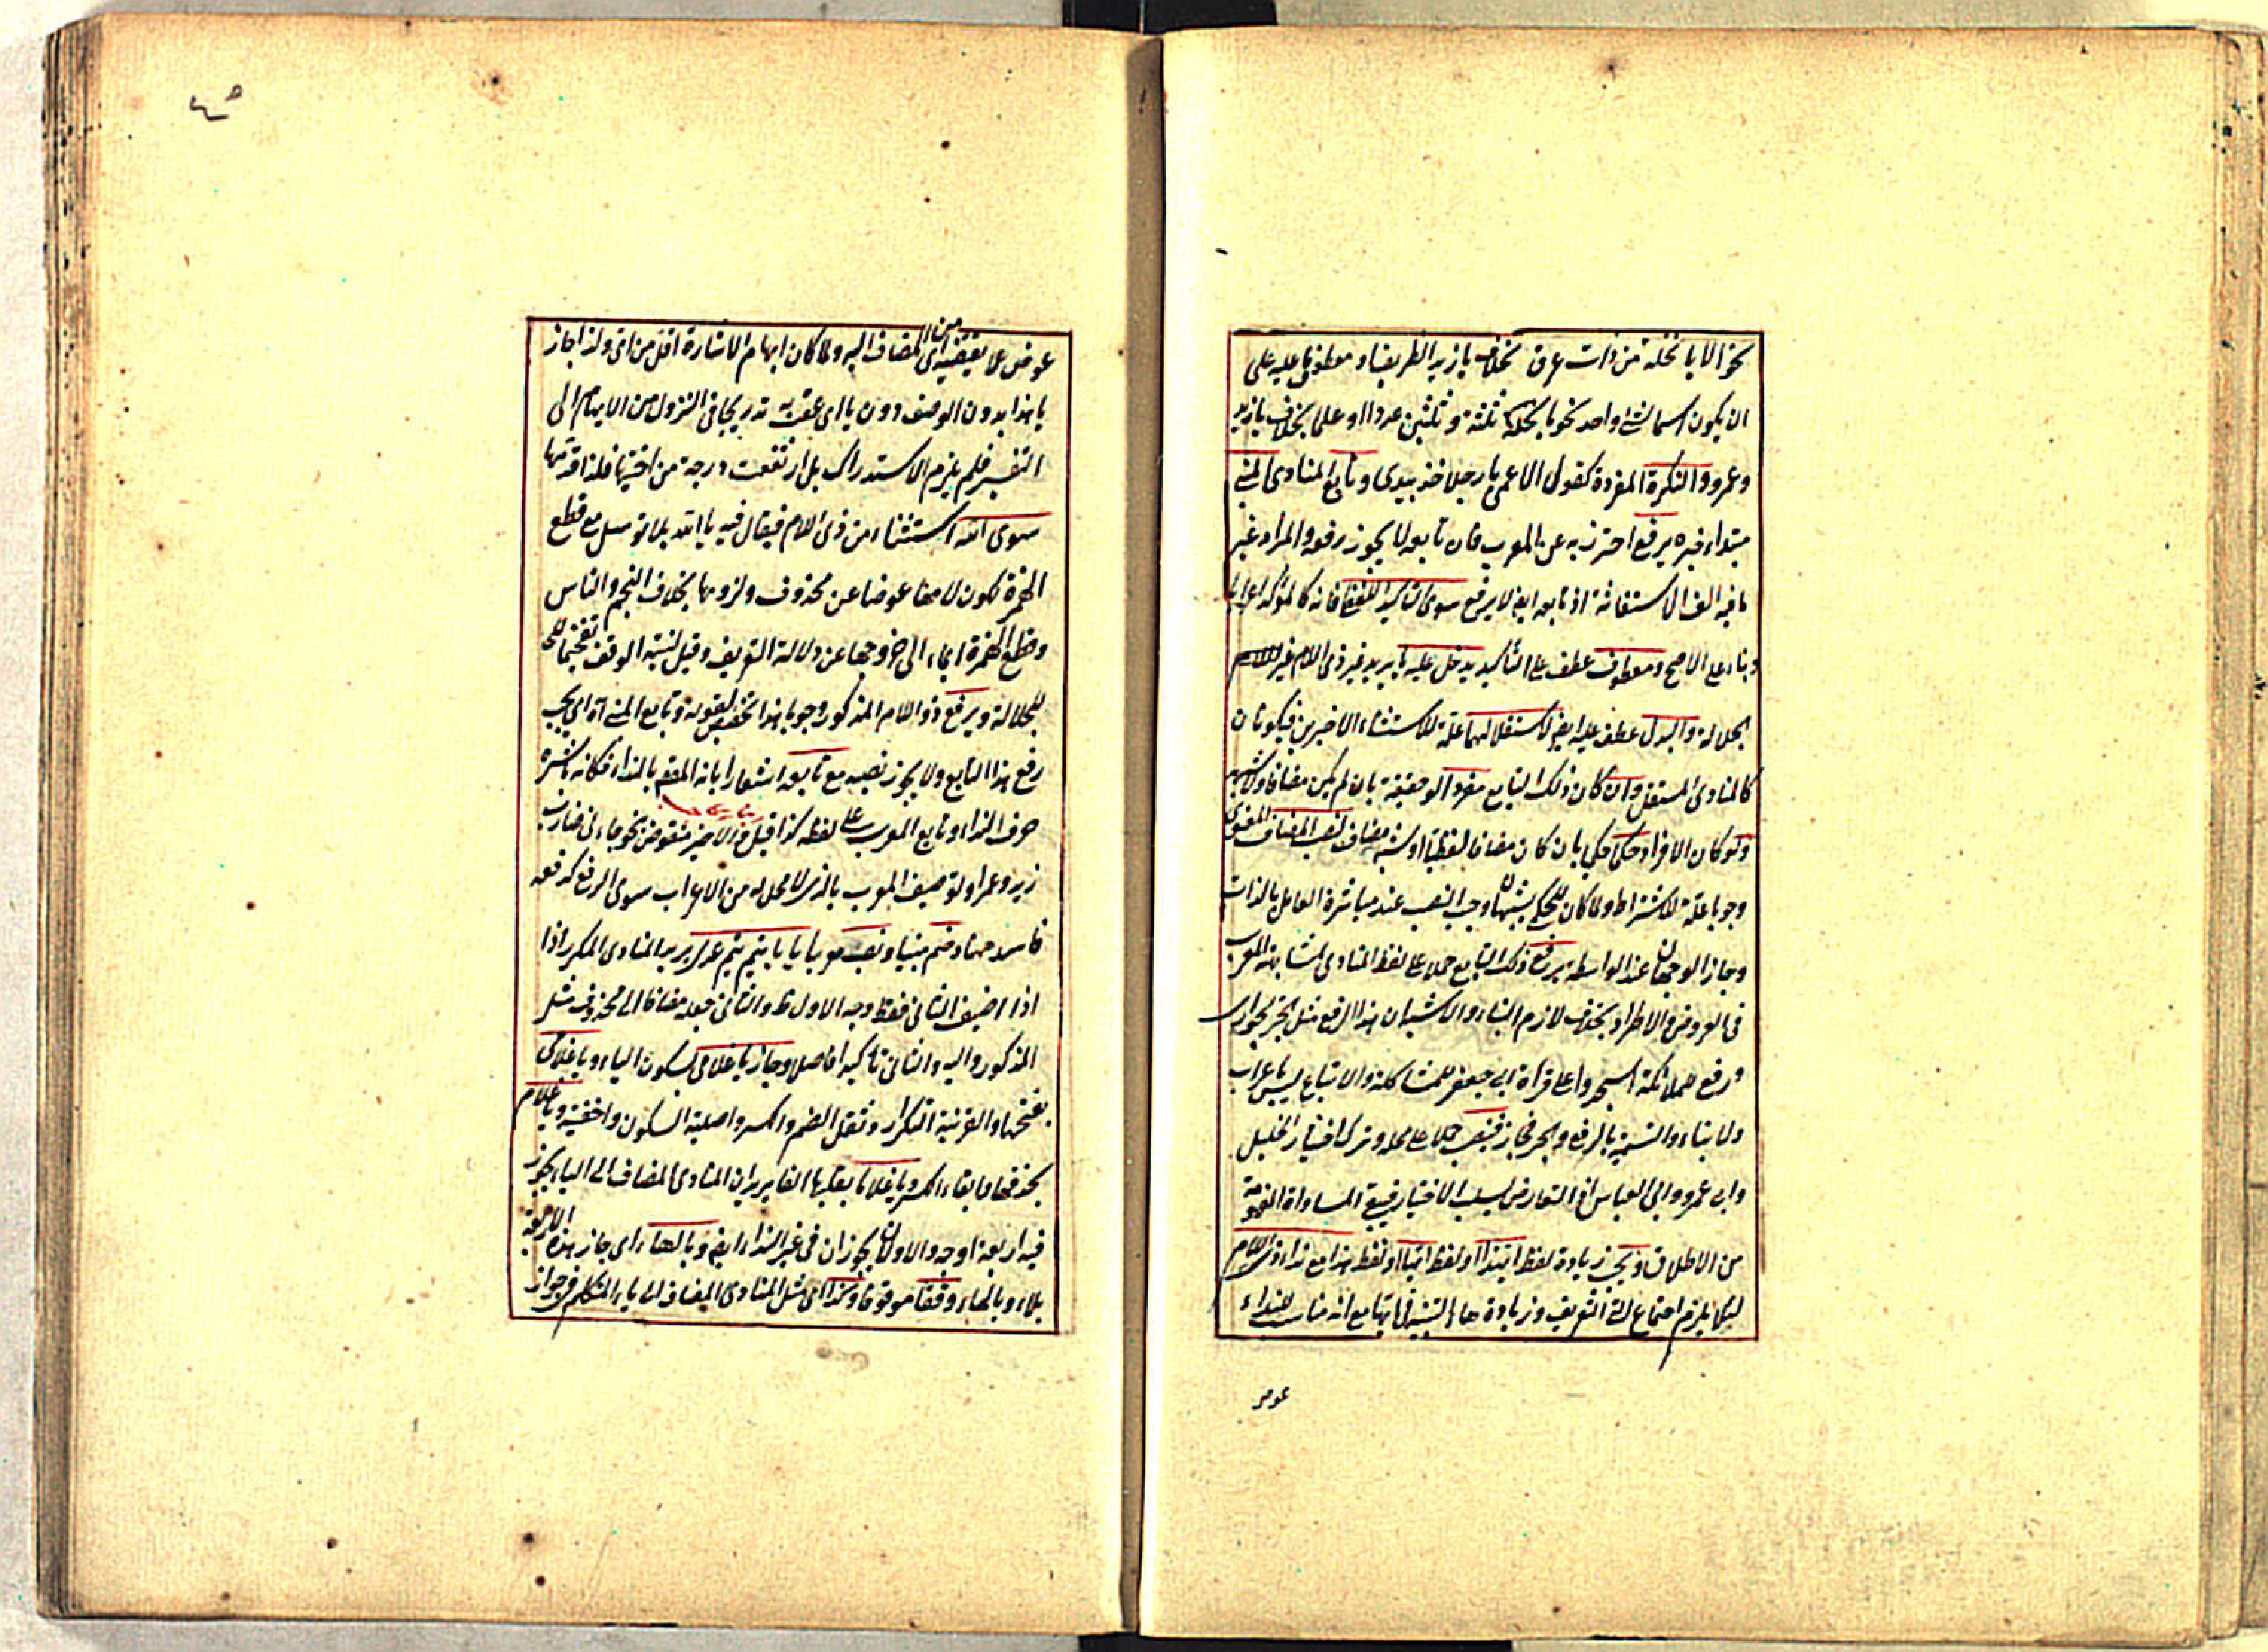 نحو الا يا نخلة من ذات عرق بخلاف يا زيد الظريف او معطوفا عليه على
ان يكون اسما لشئ واحد نحو يا ثلثة و ثلثين عددا او علما بخلاف يا زيد
وعمرو والنكرة المفردة كقول الاعمى يا رجلا خذ بيدى و تابع المنادى المبنى
مبتداء خبره يرفع احترز به عن المعرب فان تابعه لا يجوز رفعه والمراد غير
ما فيه الف الاستغاثة اذ تابعه ايضا لا يرفع سوى التاكيد اللفظى فانه كالمؤكد اعرابا
وبناء على الاصح ومعطوف عطف على التأكيد يدخل عليه يا يريد غير ذى اللام غير
الجلالة والبدل عطف عليه ايضا لاستقلالهما علة للاستثناء الاخيرين فيكونان
كالمنادى المستقل وان كان ذلك التابع مفردا لو حقيقة بان لم يكن مضافا ولا شبهه
ولو كان الافراد حكى بان كان مضافا لفظيا او شبه مضاف لنصب المضاف المعنوى
وجوبا علة للاشتراط ولما كان للحكمى شبهان وجب النصب عند مباشرة العامل بالذات
وجاز الوجهان عند الواسطة يرفع ذلك التابع حملا على لفظ المنادى لمشابهة المعرب
فى العروض والاطراد بخلاف لازم البناء والاشبه ان هذا الرفع مثل بجر الجوار
ورفع ملائكة اسجدوا على قراءة ابى جعفر للمشاكلة والاتباع ليس باعراب
ولا بناء والتسمية بالرفع والجر مجاز فينصب حملا على محله وترك اختيار الخليل
وابى عمرو وابى العباس اذ التعارض يسلب الاختيار فيبقى المساواة المفهومة
من الاطلاق ويجب زيادة لفظ ايهذا او لفظ ايها او لفظ هذا مع نداء ذى اللام
لئلا يلزم اجتماع آلة التعريف وزيادة هاء التنبيه مع انه مناسب للنداء
عوض
عوض عما يقتضيه اى من المضاف اليه ولما كان ابهام الاشارة اقل من اى ولذا جاز
يا هذا بدون الوصف دون يا اى عقبت به تدريجا فى النزول من الابهام الى
التفسير فلم يلزم الاستدراك بل ارتفعت درجة من اختيها فلذا قدمها
سوى الله استثناء من ذى اللام فيقال فيه يا الله بلا توسل مع قطع
الهمزة لكون لامها عوضا عن محذوف ولزومها بخلاف النجم والناس
وقطع الهمزة ايماء الى خروجها عن دلالة التعريف وقيل لنية الوقف تفخيما
للجلالة ويرفع ذو اللام المذكور وجوبا هذا تخصيص لقوله وتابع المبنى آه اى يجب
رفع هذا التابع ولا يجوز نصبه مع تابعه اشعارا بانه المقصود بالنداء فكانه باشره
حرف النداء وتابع المعرب على لفظه كذا قيل والاخير منقوض بنحو جاءنى ضارب
زيد وعمرا ولو صيف المعرب بالذى لا محل له من الاعراب سوى الرفع كدفعه
فاسد جهاد وضم مبنيا ونصب معربا يا يا تيم تيم عدى يريد المنادى المكرر اذا
اذا اضيف الثانى فقط وجه الاول ظ والثانى جعله مضافا الى محذوف مثل
المذكور واليه والثانى تاكيدا فاصلا وجاز يا غلامى بسكون الياء ويا غلامى
بفتحها والقرينة التكرار وثقل الضم والكسر واصلية السكون واخفية ويا غلام
بحذفها وابقاء الكسر ويا غلاما بقلبها الفا يريد ان المنادى المضاف الى الياء يجوز
فيه اربعة اوجه والاولان يجوزان فى غير النداء ايضا وبالهاء اى جاز هذه الاربعة
بلاء وبالهاء وقفا موقوفا وكذا اى مثل المنادى المضاف الى ياء المتكلم فى جواز